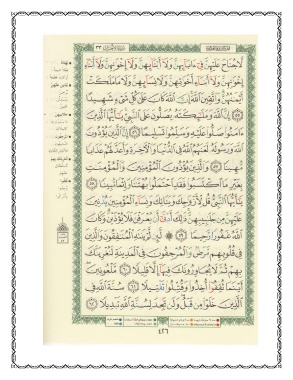 لَّا جُنَاحَ عَلَيْهِنَّ فِيٓ ءَابَآئِهِنَّ وَلَآ أَبْنَآئِهِنَّ وَلَآ إِخْوَٰنِهِنَّ وَلَآ أَبْنَآءِ
إِخْوَٰنِهِنَّ وَلَآ أَبْنَآءِ أَخَوَٰتِهِنَّ وَلَا نِسَآئِهِنَّ وَلَا مَا مَلَكَتْ
أَيْمَٰنُهُنَّ وَٱتَّقِينَ ٱللَّهَ إِنَّ ٱللَّهَ كَانَ عَلَىٰ كُلِّ شَىْءٍ شَهِيدًا
٥٥ إِنَّ ٱللَّهَ وَمَلَٰٓئِكَتَهُۥ يُصَلُّونَ عَلَى ٱلنَّبِىِّ يَٰٓأَيُّهَا ٱلَّذِينَ
ءَامَنُوا۟ صَلُّوا۟ عَلَيْهِ وَسَلِّمُوا۟ تَسْلِيمًا ٥٦ إِنَّ ٱلَّذِينَ يُؤْذُونَ
ٱللَّهَ وَرَسُولَهُۥ لَعَنَهُمُ ٱللَّهُ فِى ٱلدُّنْيَا وَٱلْءَاخِرَةِ وَأَعَدَّ لَهُمْ عَذَابًا
مُّهِينًا ٥٧ وَٱلَّذِينَ يُؤْذُونَ ٱلْمُؤْمِنِينَ وَٱلْمُؤْمِنَٰتِ
بِغَيْرِ مَا ٱكْتَسَبُوا۟ فَقَدِ ٱحْتَمَلُوا۟ بُهْتَٰنًا وَإِثْمًا مُّبِينًا ٥٨
يَٰٓأَيُّهَا ٱلنَّبِىُّ قُل لِّأَزْوَٰجِكَ وَبَنَاتِكَ وَنِسَآءِ ٱلْمُؤْمِنِينَ يُدْنِينَ
عَلَيْهِنَّ مِن جَلَٰبِيبِهِنَّ ذَٰلِكَ أَدْنَىٰٓ أَن يُعْرَفْنَ فَلَا يُؤْذَيْنَ وَكَانَ
ٱللَّهُ غَفُورًا رَّحِيمًا ٥٩ لَّئِن لَّمْ يَنتَهِ ٱلْمُنَٰفِقُونَ وَٱلَّذِينَ
فِى قُلُوبِهِم مَّرَضٌ وَٱلْمُرْجِفُونَ فِى ٱلْمَدِينَةِ لَنُغْرِيَنَّكَ
بِهِمْ ثُمَّ لَا يُجَاوِرُونَكَ فِيهَآ إِلَّا قَلِيلًا ٦٠ مَّلْعُونِينَ
أَيْنَمَا ثُقِفُوٓا۟ أُخِذُوا۟ وَقُتِّلُوا۟ تَقْتِيلًا ٦١ سُنَّةَ ٱللَّهِ فِى
ٱلَّذِينَ خَلَوْا۟ مِن قَبْلُ وَلَن تَجِدَ لِسُنَّةِ ٱللَّهِ تَبْدِيلًا ٦٢
٤٢٦